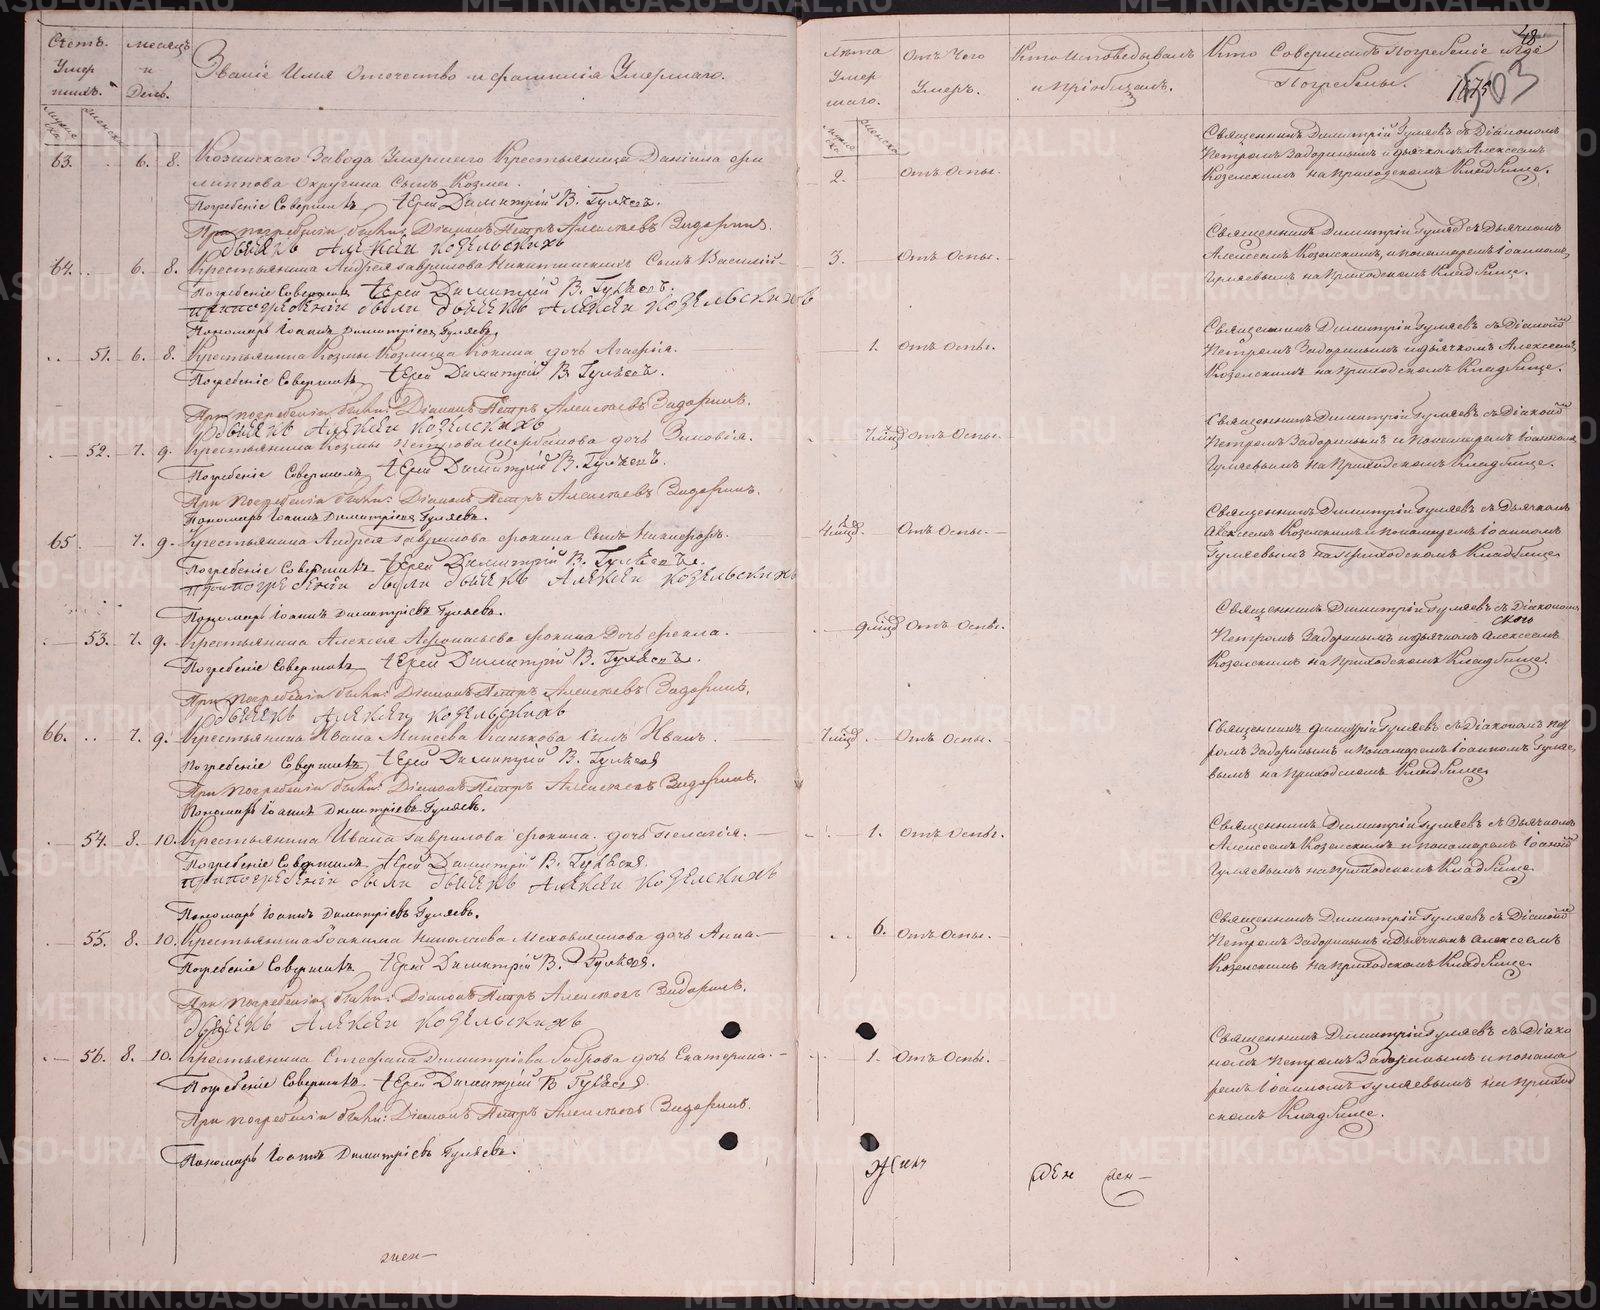 Счетъ Умер шихъ.
мужеска
женска
Месяцъ и День.
Званіе Имя Отечество и фамилія Умершаго.
63. 6. 8. Козинскаго Завода Умершего Крестьянина Даніила Фи
липпова Окружина Сынъ Козма.
Погребеніе Совершилъ Іерей Димитрій В. Гуляевъ.
При погребеніи были: Діаконъ Петръ Алексѣевъ Задоринъ.
Дьячекъ Алексѣй Козельскихъ
64. 6. 8. Крестьянина Андрея Гаврилова Никитинскихъ Сынъ Василій
Погребеніе Совершилъ Іерей Димитрій В. Гуляевъ.
при погребеніи были дьячекъ Алексѣй Козельскихъ
Пономарь Іоаннъ Димитріевъ Гуляевъ.
51. 6. 8. Крестьянина Козмы Козмина Кокина дочь Агафія.
Погребеніе Совершилъ Іерей Димитрій В. Гуляевъ.
При погребеніи были: Діаконъ Петръ Алексѣевъ Задоринъ.
Дьячекъ Алексѣй Козелскихъ
52. 7. 9. Крестьянина Козмы Петрова Щербакова дочь Зиновія.
Погребеніе Совершилъ Іерей Димитрій В. Гуляевъ.
При погребеніи были: Діаконъ Петръ Алексѣевъ Задоринъ.
Пономарь Іоаннъ Димитріевъ Гуляевъ.
65 7. 9. Крестьянина Андрея Гаврилова Фокина Сынъ Никифоръ.
Погребеніе Совершилъ Іерей Димитрій В. Гуляевъ.
При погребеніи были дьячекъ Алексѣй Козельскихъ
Пономарь Іоаннъ Димитріевъ Гуляевъ.
53. 7. 9. Крестьянина Алексея Афонасьева Фокина Дочь Фекла.
Погребеніе Совершилъ Іерей Димитрій В. Гуляевъ.
При погребеніи были: Діаконъ Петръ Алексѣевъ Задоринъ.
Дьячекъ Алексѣй Козельскихъ
66. 7. 9. Крестьянина Ивана Михеева Ванькова Сынъ Иванъ.
Погребеніе Совершилъ Іерей Димитрій В. Гуляевъ
При погребеніи были: Діаконъ Петръ Алексѣевъ Задоринъ.
Пономарь Іоаннъ Димитріевъ Гуляевъ.
54. 8. 10. Крестьянина Ивана Гаврилова Фокина дочь Пелагія.
Погребеніе Совершилъ Іерей Димитрій В. Гуляевъ.
при погребеніи были дьячекъ Алексѣй Козелскихъ
Пономарь Іоаннъ Димитріевъ Гуляевъ.
55. 8. 10. Крестьянина Іоакима Николаева дочь Анна.
Погребеніе Совершилъ Іерей Димитрій В. Гуляевъ.
При погребеніи были: Діаконъ Петръ Алексѣевъ Задоринъ.
Дьячекъ Алексѣй Козельскихъ
56. 8. 10. Крестьянина Стефана Димитріева Боброва дочь Екатерина.
Погребеніе Совершилъ Іерей Димитрій В Гуляевъ
При погребеніи были: Діаконъ Петръ Алексѣевъ Задоринъ.
Пономарь Іоаннъ Димитріевъ Гуляевъ.
Лѣта Умер шаго.
мужеска
женска
Отъ Чего Умеръ.
Кто Исповедывалъ и Пріобщалъ.
Кто Совершалъ Погребеніе и Где Погребены.
48
1875
503
2. Отъ Оспы.
Священникъ Димитрій Гуляевъ съ Діакономъ
Петромъ Задоринымъ и дьячкомъ Алексеемъ
Козелскимъ на Приходскомъ Кладбище.
3. Отъ Оспы.
Священникъ Димитрій Гуляевъ съ Дьячкомъ
Алексеемъ Козелскимъ, и пономаремъ Іоанномъ
Гуляевымъ на Приходскомъ Кладбище.
1. Отъ Оспы.
Священникъ Димитрій Гуляевъ съ Діаконо
Петромъ Задоринымъ и дьячкомъ Алексеемъ
Козелскимъ на Приходскомъ Кладбище.
7 мѣц Отъ Оспы.
Священникъ Димитрій Гуляевъ съ Діаконо
Петромъ Задоринымъ и Пономаремъ Іоанномъ
Гуляевымъ на Приходскомъ Кладбище.
4 мѣц. Отъ Оспы.
Священникъ Димитрій Гуляевъ съ Дьячкомъ
Алексеемъ Козелскимъ и пономаремъ Іоанномъ
Гуляевымъ на Приходскомъ Кладбище
9 мѣц Отъ Оспы.
Священникъ Димитрій Гуляевъ съ Діакономъ
Петромъ Задоринымъ и дьячкомъ Алексеемъ
Козелскимъ на Приходскомъ Кладбище.
7 мѣц. Отъ Оспы.
Священникъ Димитрій Гуляевъ съ Діакономъ Пет
ромъ Задоринымъ и Пономаремъ Іоанномъ Гуляе
вымъ на Приходскомъ Кладбище
1. Отъ Оспы.
Священникъ Димитрій Гуляевъ съ Дьячкомъ
Алексеемъ Козелскимъ и пономаремъ Іоанно
Гуляевымъ на Приходскомъ Кладбище
6. Отъ Оспы.
Священникъ Димитрій Гуляевъ съ Діаконо
Петромъ Задоринымъ и Дьячкомъ Алексеемъ
Козелскимъ на Приходскомъ Кладбище
1. Отъ Оспы.
Священникъ Димитрій Гуляевъ съ Діако
номъ Петромъ Задоринымъ и понома
ремъ Іоанномъ Гуляевымъ на Приход
скомъ Кладбище.
METRIKI.GASO-URAL.RU